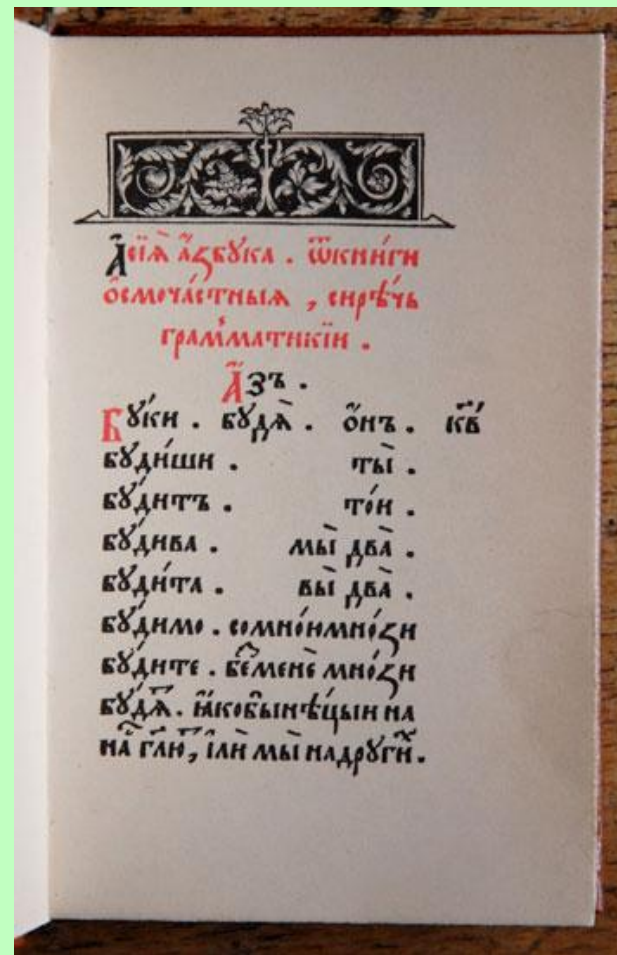 А҆сїѧ̀ а҆́ꙁбꙋка . ѿкни́ги
ѻ҆смоча́стныѧ , сирѣ́чь
грам̾матикі́и .
А҆́ꙁъ .
Бꙋ́ки . бꙋдѧ̀ . ѻ҆́нъ .
бꙋди́ши . ты̀ .
бꙋ́дитъ . то́и .
бꙋ́дива . мы̀ два̀ .
бꙋди́та . вы̀ два̀ .
бꙋ́димо . сомно́юмно́ꙁи
бꙋ́дите . беⷥменѐ мно́ꙁи
бꙋ́дѧⷮ . ꙗ҆кобынѣ́цыи на
гл҃ю , і҆лѝ мы̀ надрꙋги́ⷯ .